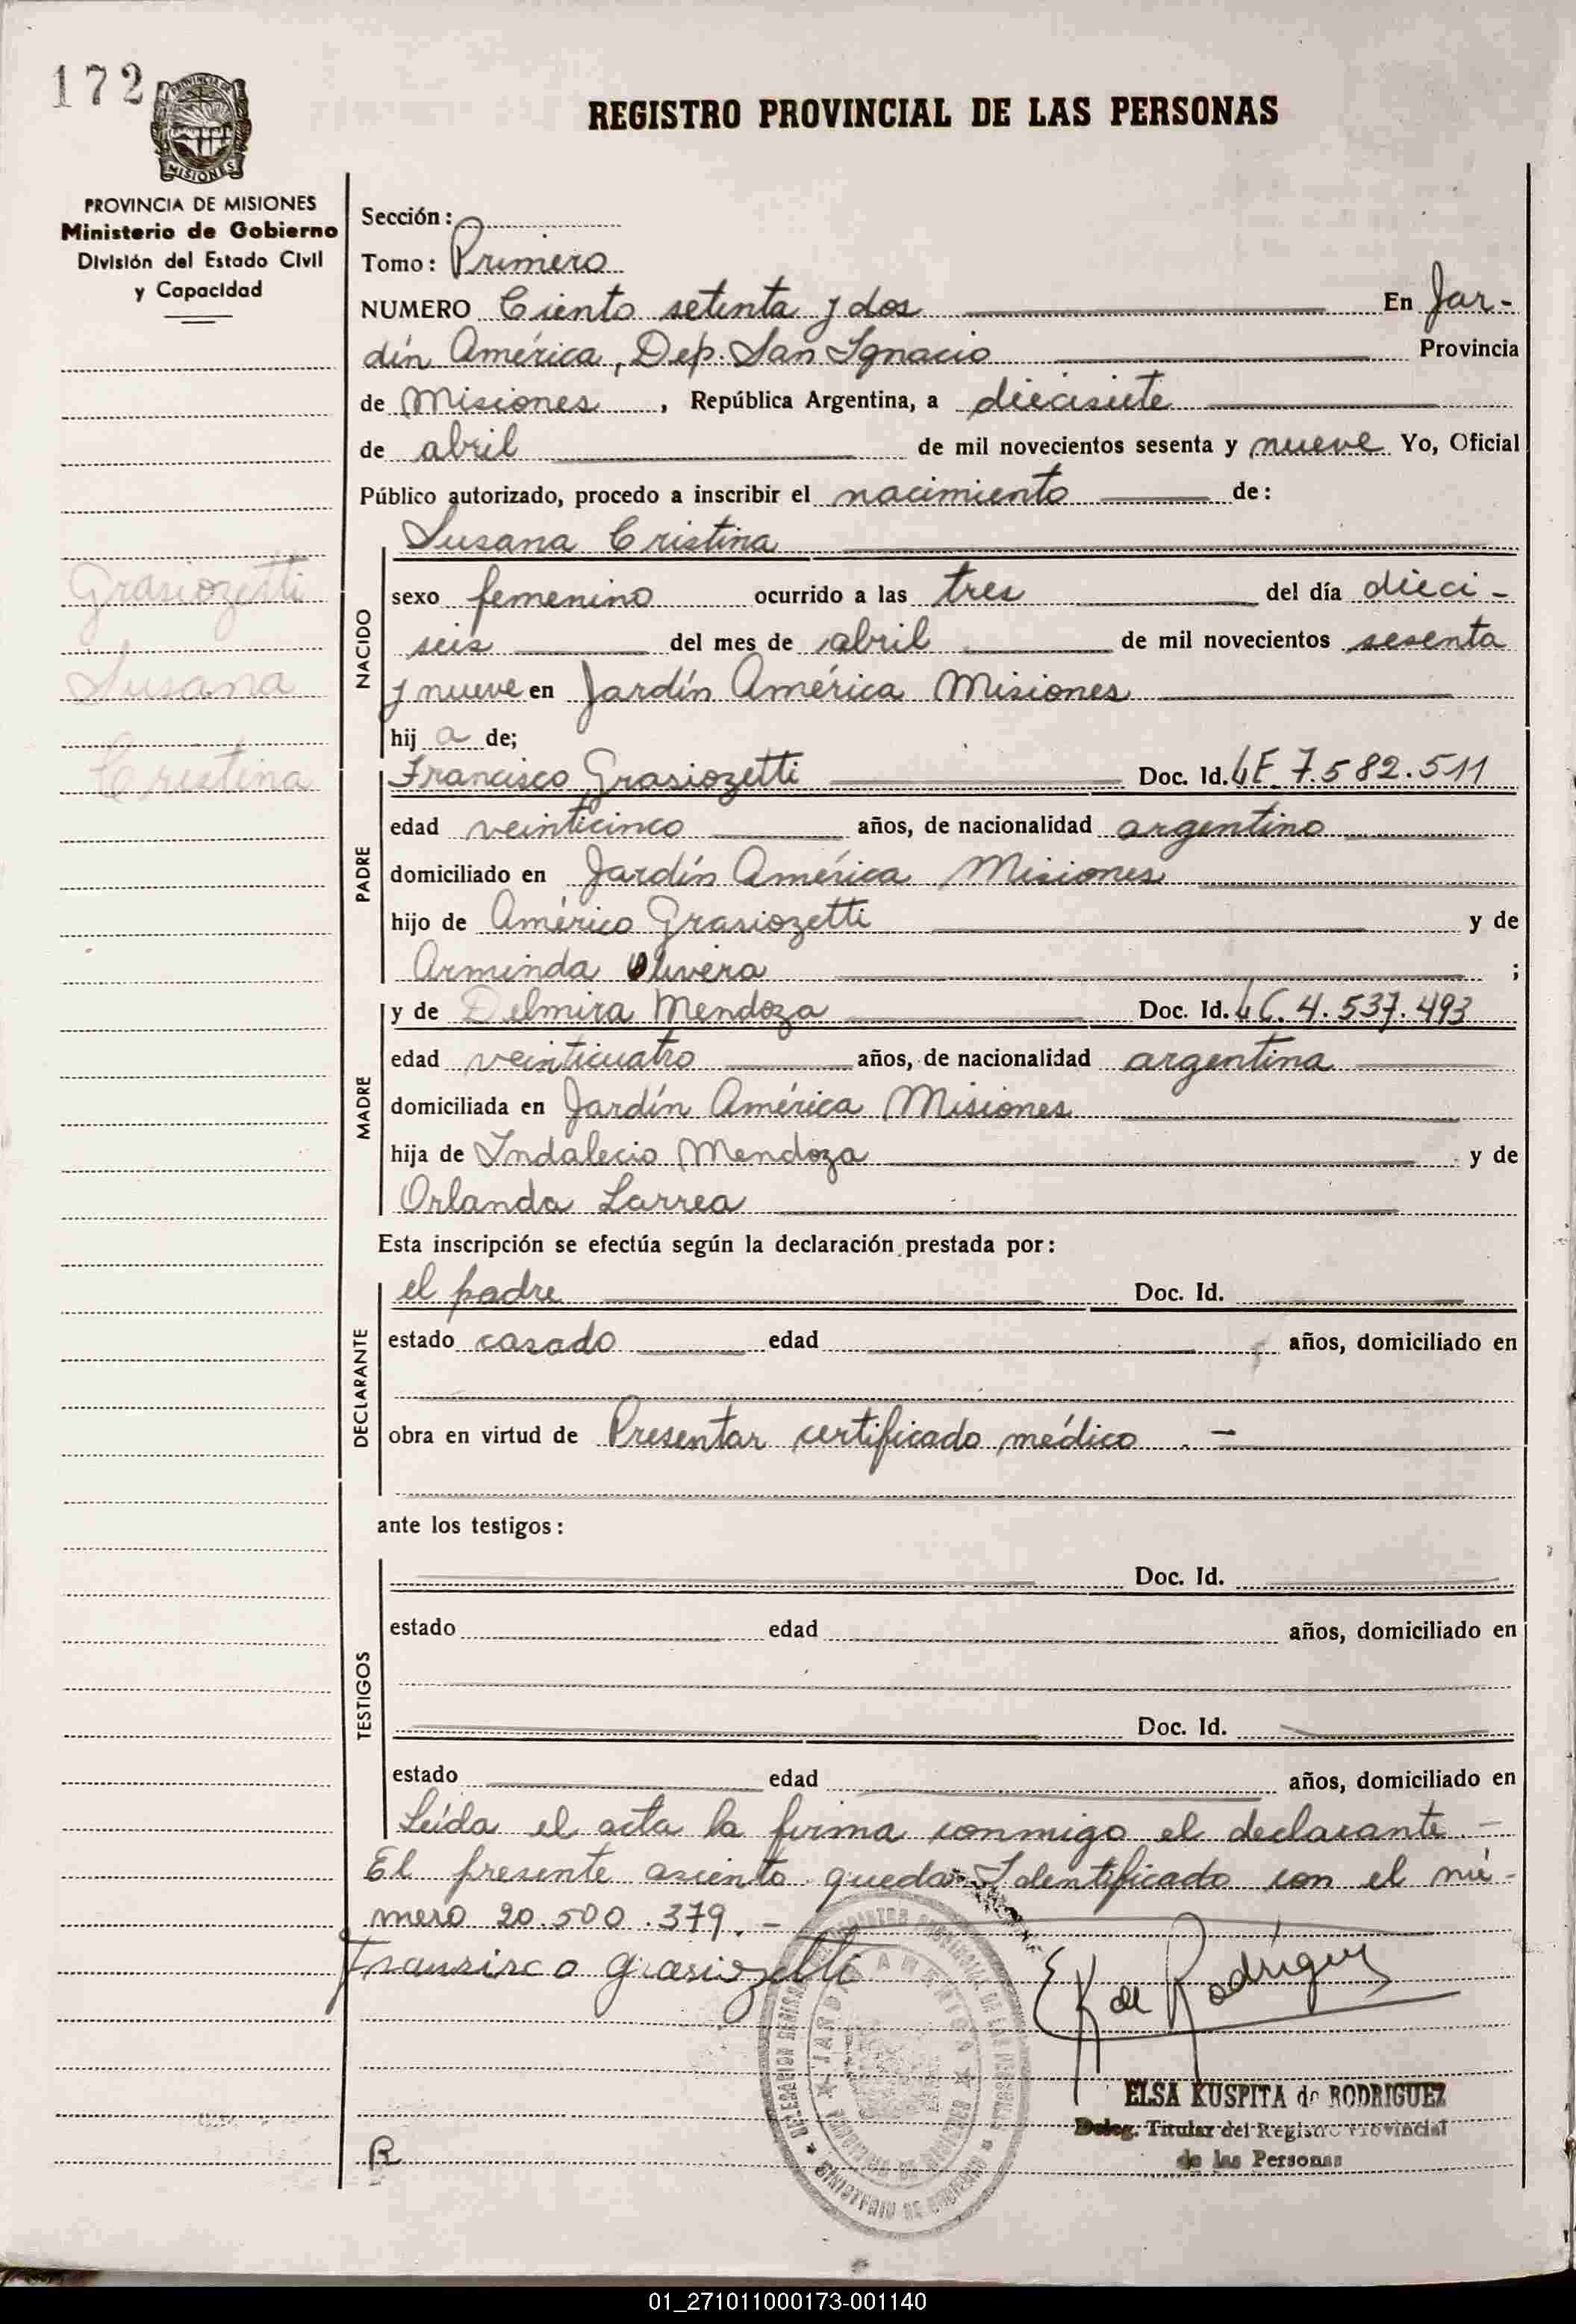 172
PROVINCIA DE MISIONES
Ministerio de Gobierno
División del Estado Civil
y Capacidad
Grasiozetti
Susana
Cristina
REGISTRO PROVINCIAL DE LAS PERSONAS
Sección:
Tomo: Primero
NUMERO Ciento setenta y dos En Jar-
dín América, Dep. San Ignacio Provincia
de Misiones, República Argentina, a diecisiete
de abril de mil novecientos sesenta y nueve Yo, Oficial
Público autorizado, procedo a inscribir el nacimiento de:
Susana Cristina
NACIDO
sexo femenino ocurrido a las tres del día dieci-
seis del mes de abril de mil novecientos sesenta
y nueve en Jardín América Misiones
hija de;
Francisco Grasiozetti Doc. Id. LE 7.582.511
PADRE
edad veinticinco años, de nacionalidad argentino
domiciliado en Jardín América Misiones
hijo de Américo Grasiozetti y de
Arminda Olivera ;
y de Delmira Mendoza Doc. Id. LC. 4.537.493
MADRE
edad veinticuatro años, de nacionalidad argentina
domiciliada en Jardín América Misiones
hija de Indalecio Mendoza y de
Orlanda Larrea
Esta inscripción se efectúa según la declaración prestada por:
DECLARANTE
el padre Doc. Id.
estado casado edad años, domiciliado en
obra en virtud de Presentar certificado médico . -
ante los testigos:
TESTIGOS
Doc. Id.
estado edad años, domiciliado en
Doc. Id.
estado edad años, domiciliado en
Leída el acta la firma conmigo el declarante.-
El presente asiento queda Identificado con el nú-
mero 20.500.379.-
Francisco Grasiozetti
EK de Rodríguez
JARDIN AMERICA
MINISTERIO DE GOBIERNO
ELSA KUSPITA de RODRIGUEZ
Deleg. Titular del Registro Provincial
de las Personas
R
01_271011000173-001140